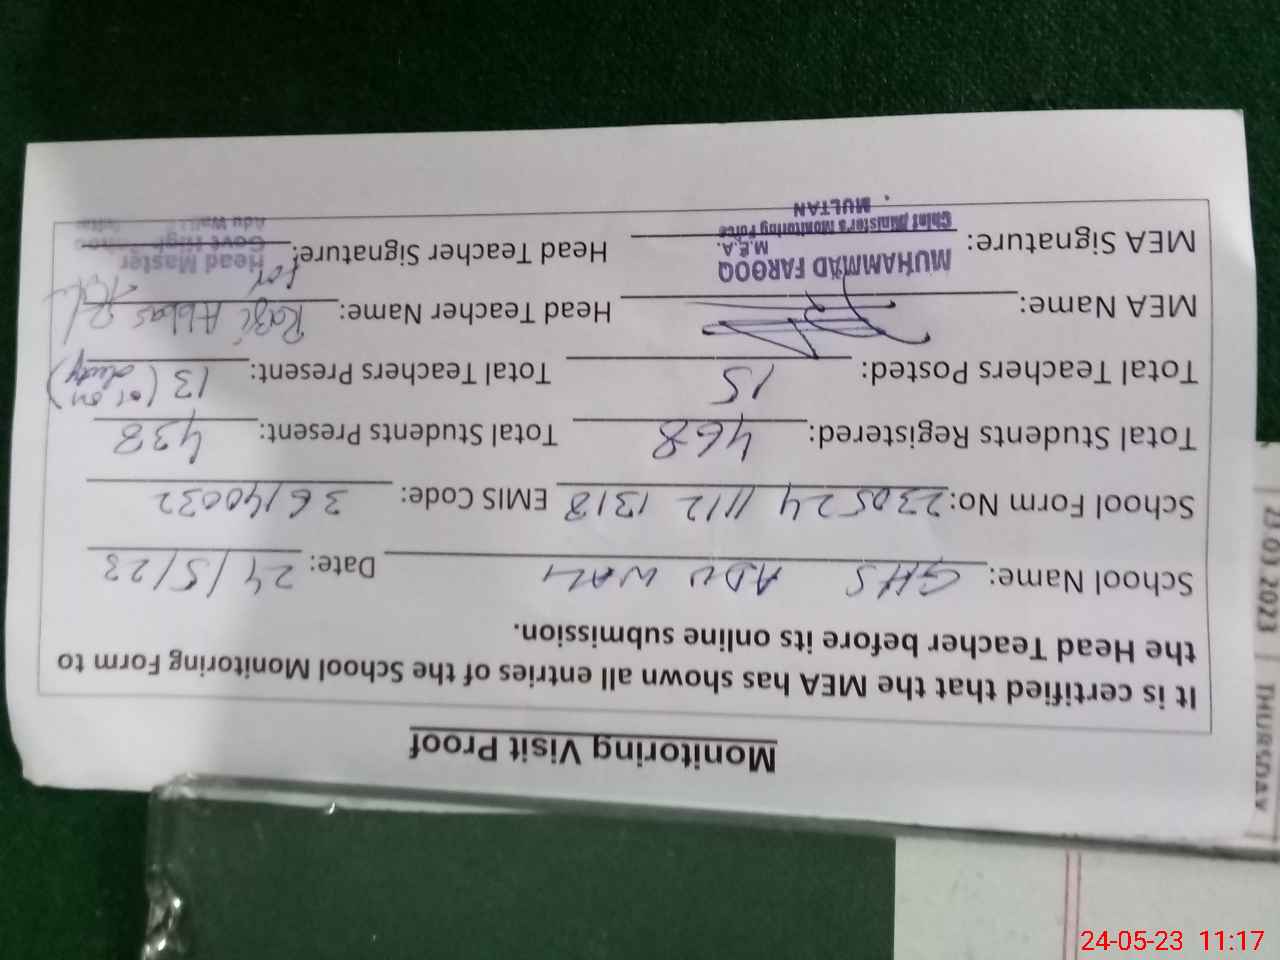 Monitoring Visit Proof
It is certified that the MEA has shown all entries of the School Monitoring Form to
the Head Teacher before its online submission.
School Name: GHS ADU WALI Date: 24/5/23
School Form No: 230524 1112 1318 EMIS Code: 36140032
Total Students Registered: 468 Total Students Present: 438
Total Teachers Posted: 15 Total Teachers Present: 13 (01 on duty)
MEA Name: Head Teacher Name: Razi Abbas
MEA Signature: Head Teacher Signature: for
MUHAMMAD FAROOQ
M.E.A.
Chief Minister's Monitoring Force
MULTAN
Head Master
Govt High School
Adu Wali
23.03.2023 THURSDAY
24-05-23 11:17